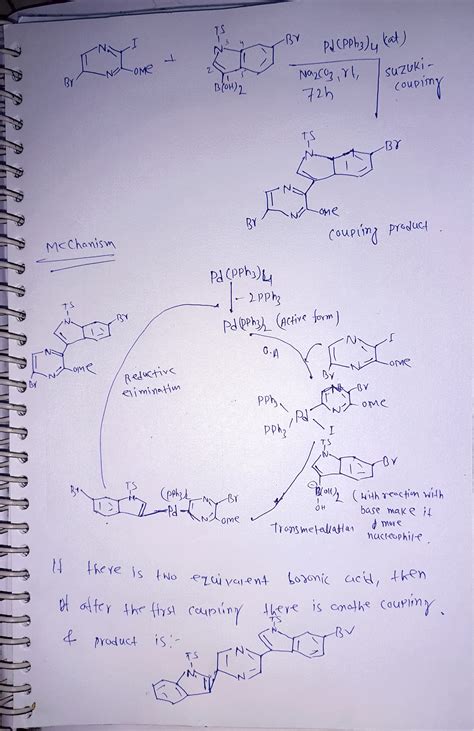 TS
I
N
Br
Pd(PPh3)4 (cat)
N
+
Br
N
OMe
B(OH)2
Na2CO3, rt,
72h
suzuki-
coupling
TS
N
Br
N
N
Br
OMe
coupling product.
Mechanism
Pd(PPh3)4
- 2PPh3
Pd(PPh3)2 (Active form)
TS
N
Br
N
N
OMe
Br
O.A
N
I
N
OMe
Br
Reductive
elimination
PPh3
PPh3
Pd
I
Br
OMe
TS
N
Br
B(OH)2
OH
(with reaction with
base make it
more
nucleophile.
TS
N
Br
(PPh3)2
Pd
N
N
Br
OMe
Transmetallation
If there is two equivalent boronic acid, then
after the first coupling there is anothe coupling.
& product is:-
TS
N
N
N
TS
N
Br